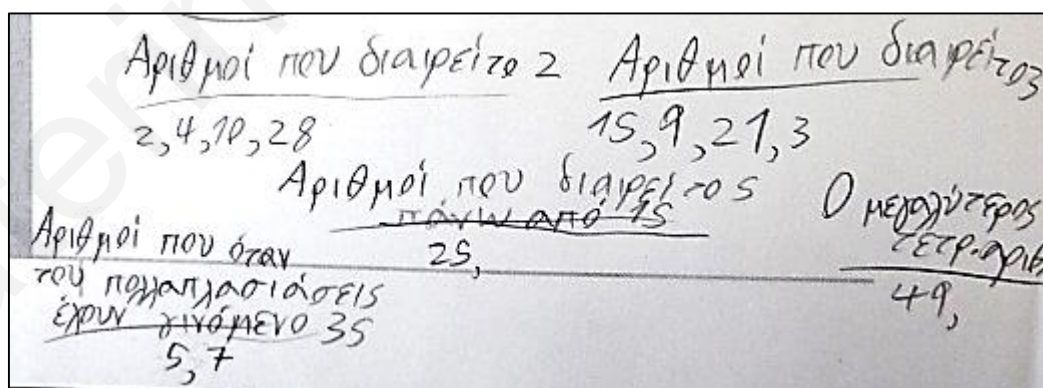 Αριθμοί που διαιρεί το 2
2,4,10,28
Αριθμοί που διαιρεί το 3
15,9,21,3
Αριθμοί που διαιρεί το 5
πάνω από 15
25,
Ο μεγαλύτερος
τετρ. αριθ
49,
Αριθμοί που όταν
του πολλαπλασιάσεις
έχουν γινόμενο 35
5,7